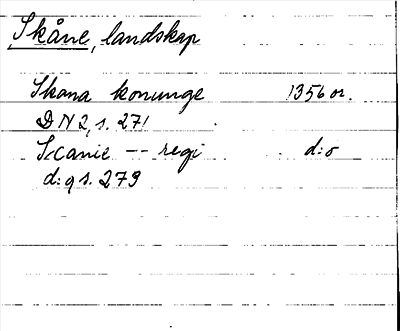 Skåne, landskap
Skana konunge 1356 or.
DN 2, s. 271
Scanie -- regi d:o
d:o s. 279